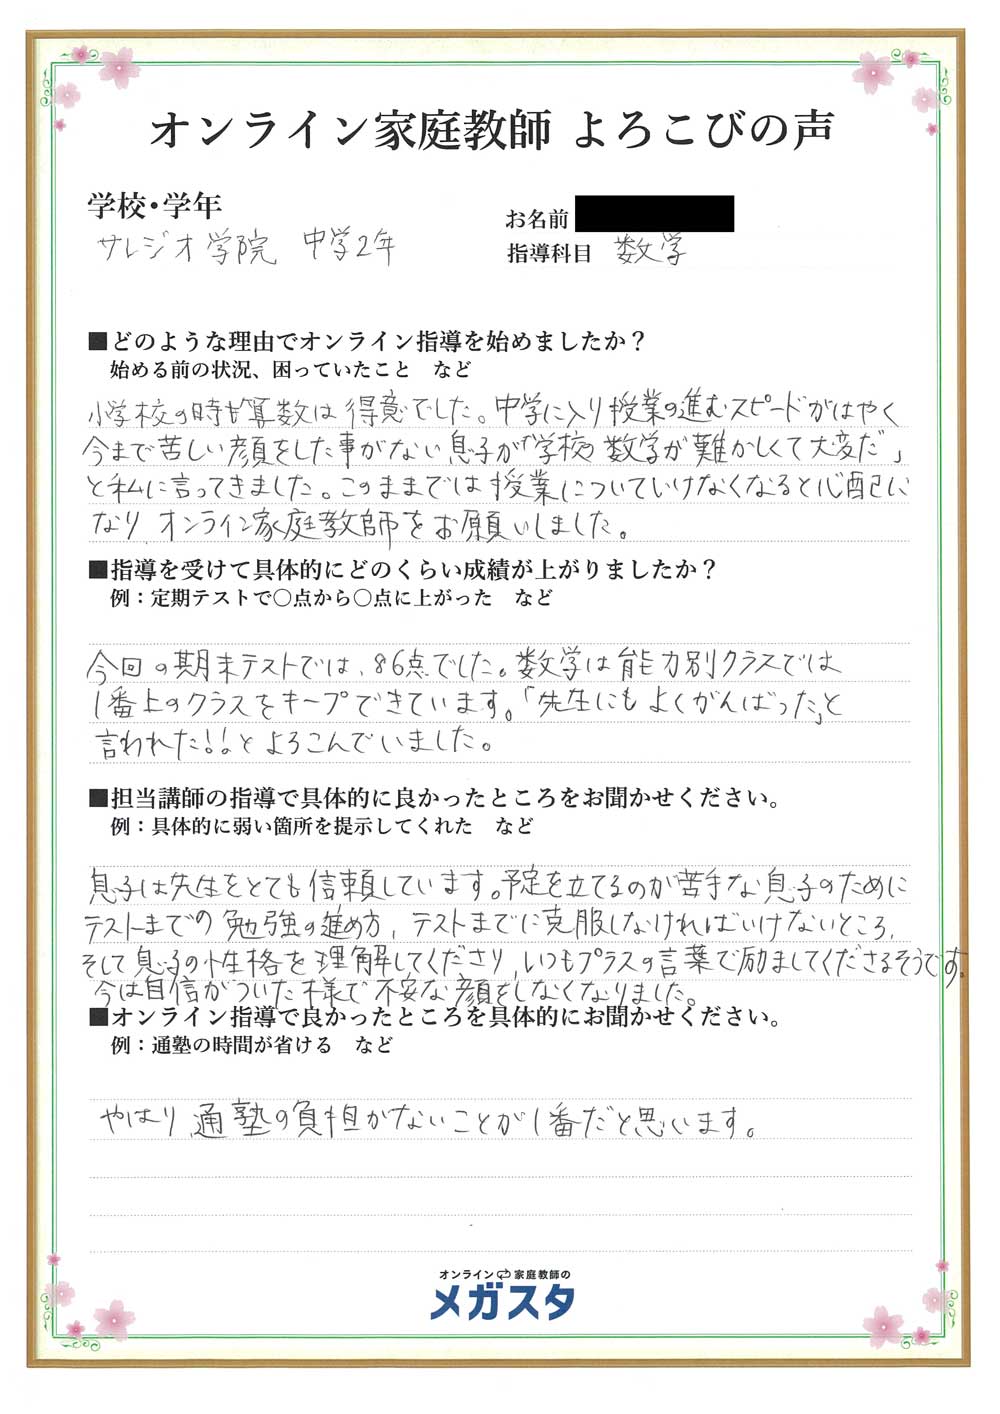 オンライン家庭教師 よろこびの声
学校・学年
サレジオ学院 中学2年
お名前
指導科目 数学
■どのような理由でオンライン指導を始めましたか？
始める前の状況、困っていたこと など
小学校の時は算数は得意でした。中学に入り授業の進むスピードがはやく
今まで苦しい顔をした事がない息子が「学校の数学が難かしくて大変だ」
と私に言ってきました。このままでは授業についていけなくなると心配に
なり、オンライン家庭教師をお願いしました。
■指導を受けて具体的にどのくらい成績が上がりましたか？
例：定期テストで〇点から〇点に上がった など
今回の期末テストでは、86点でした。数学は能力別クラスでは
1番上のクラスをキープできています。「先生にもよくがんばった」と
言われた!!とよろこんでいました。
■担当講師の指導で具体的に良かったところをお聞かせください。
例：具体的に弱い箇所を提示してくれた など
息子は先生をとても信頼しています。予定を立てるのが苦手な息子のために
テストまでの勉強の進め方、テストまでに克服しなければいけないところ、
そして息子の性格を理解してくださり、いつもプラスの言葉で励ましてくださるそうです。
今は自信がついた様で不安な顔をしなくなりました。
■オンライン指導で良かったところを具体的にお聞かせください。
例：通塾の時間が省ける など
やはり、通塾の負担がないことが1番だと思います。
オンライン家庭教師の
メガスタ